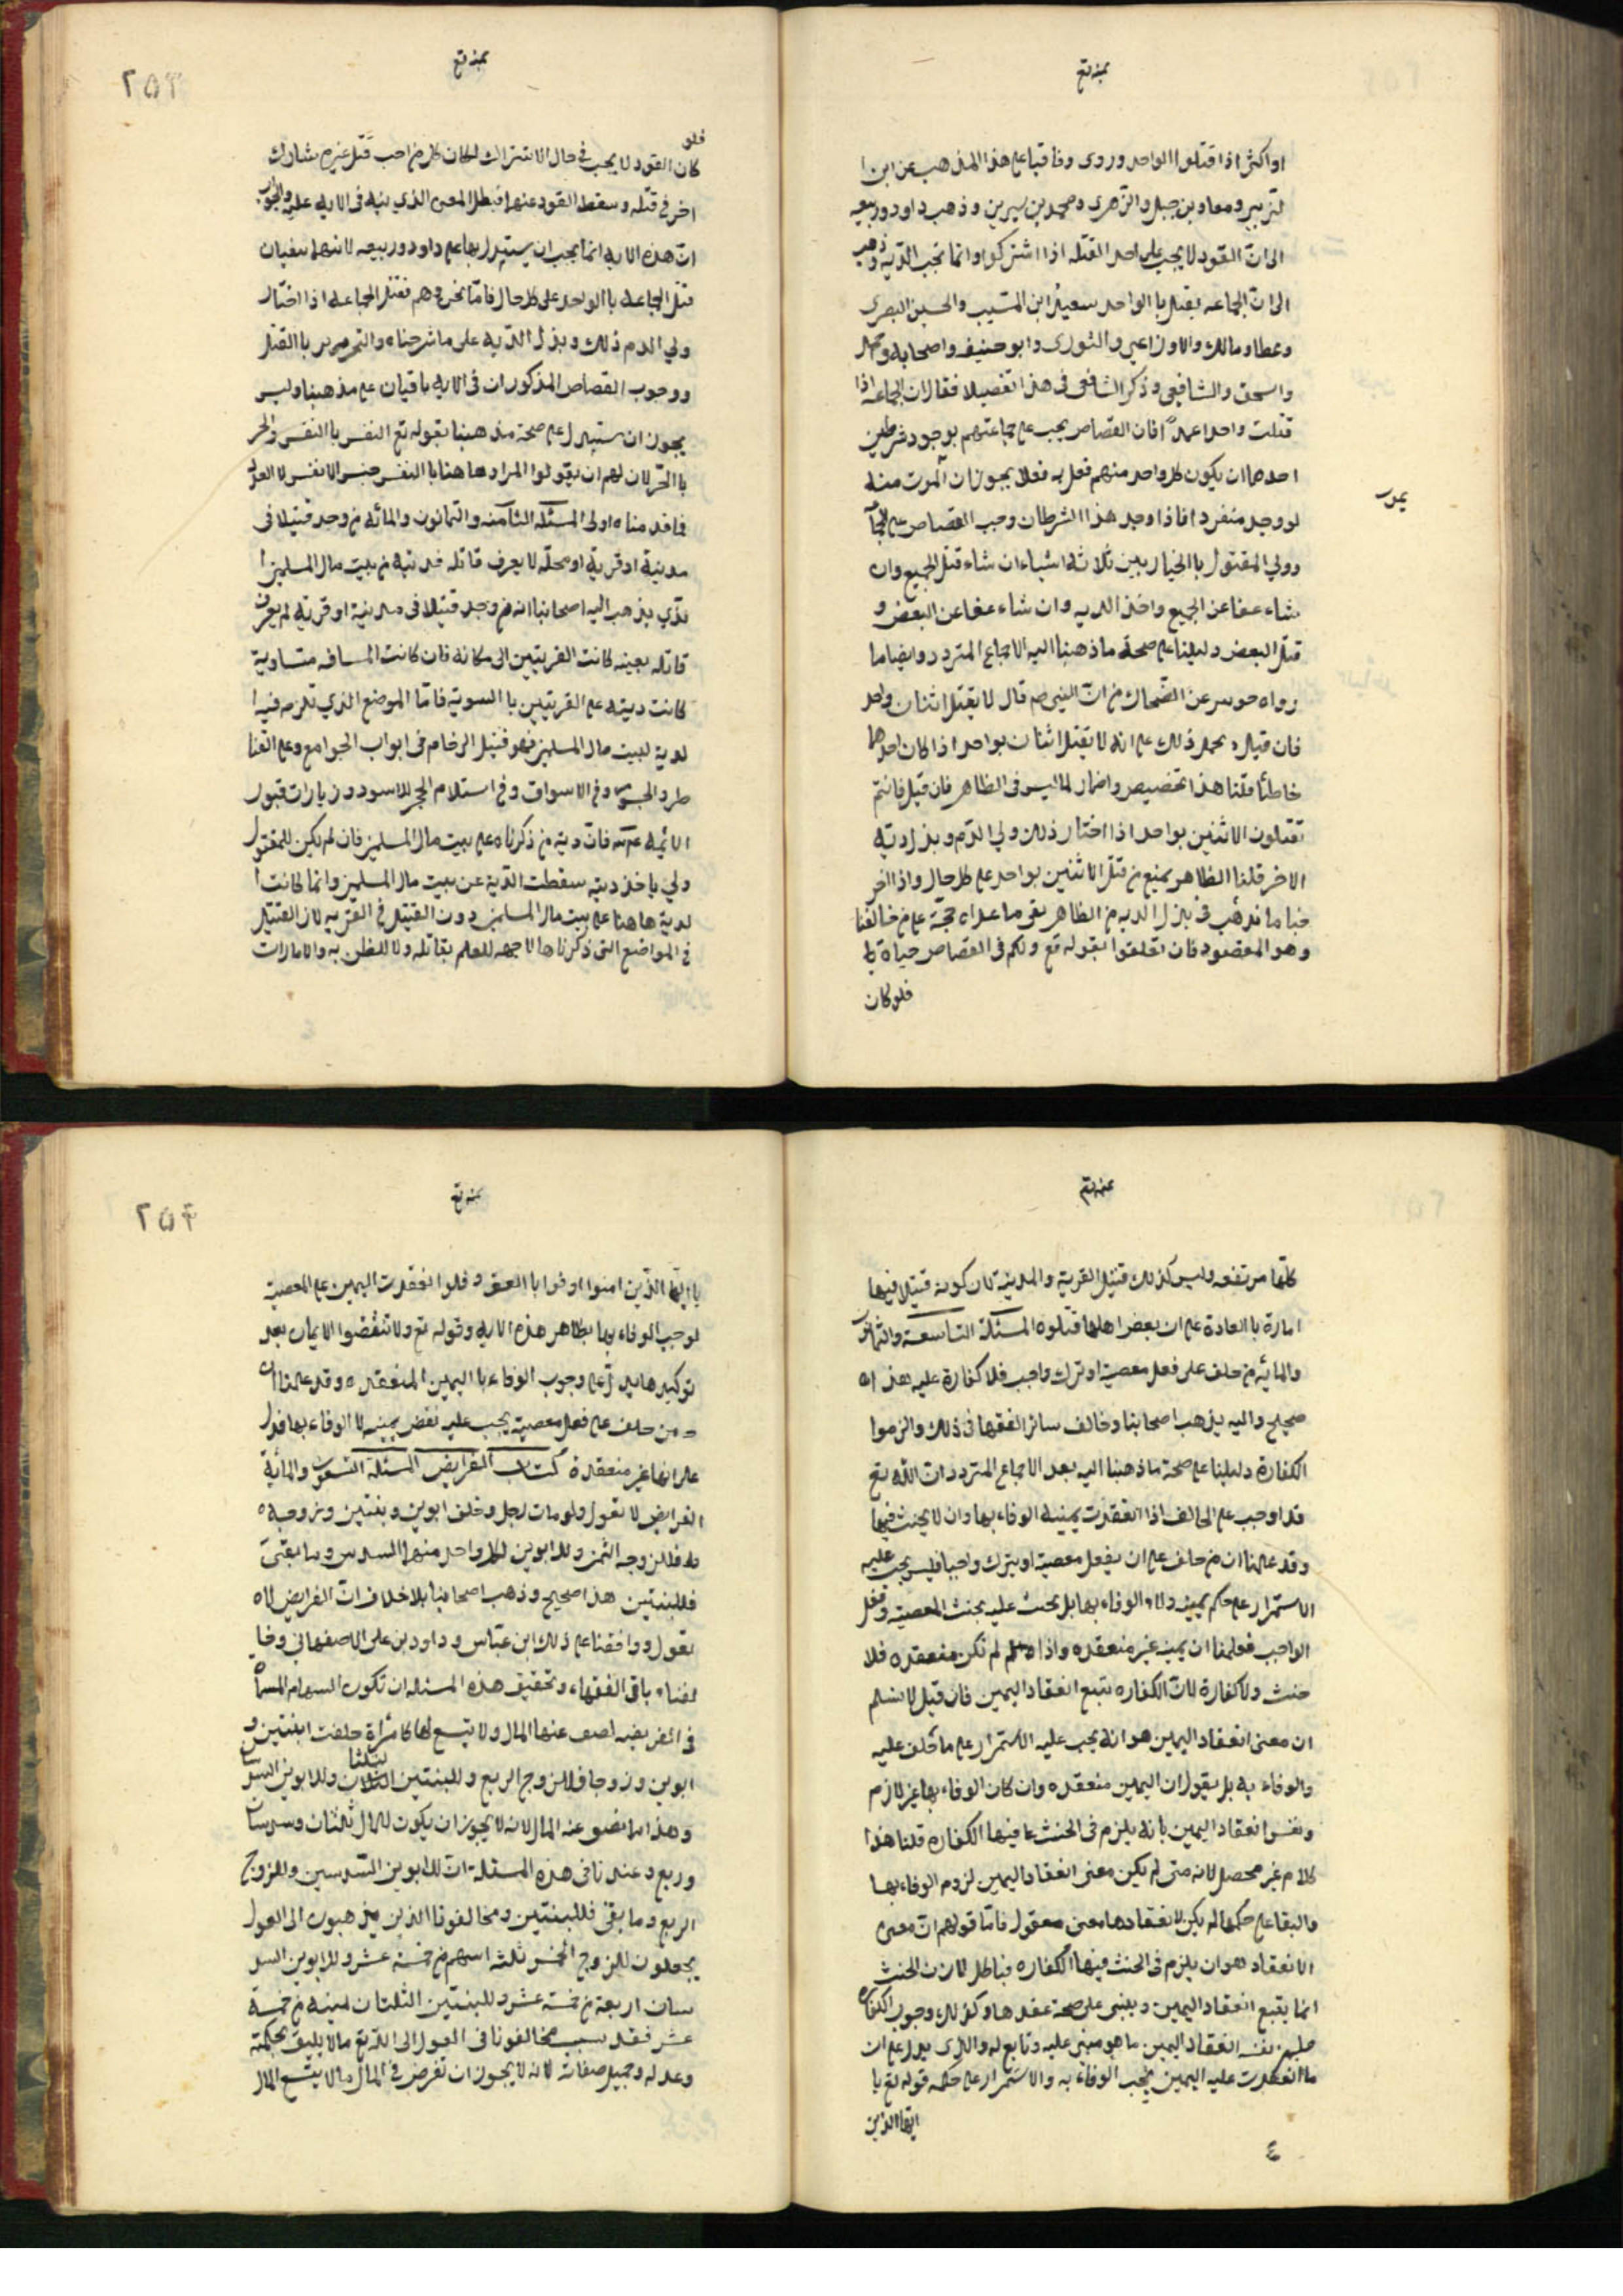 بمنه تع
او اكثر اذا قتلوا الواحد وروى وفاقنا على هذا المذهب عن ابن ا
لزبير ومعاذ بن جبل والزهري ومحمد بن سيرين وذهب داود وربيعه
الى ان القود لا يجب على احد القتله اذا اشتركوا وانما تجب الديه وذهب
الى ان الجماعه يقتل باالواحد سعيد ابن المسيب والحسن البصرى
وعطا ومالك والاوزاعي والثورى وابو حنيفه واصحابه واحمد
واسحق والشافعي وذكر الشافعى فى هذا تفصيلا فقال ان الجماعه اذا
قتلت واحدا عمداً فان القصاص يجب على جماعتهم بوجود شرطين
احدهما ان يكون كل واحد منهم فعل به فعلا يجوز ان الموت منه
يموت
لو وجد منفردا فاذا وجد هذا الشرطان وجب القصاص على
وولي المقتول باالخيار بين ثلاثه اشياء ان شاء قتل الجميع وان
شاء عفا عن الجميع واخذ الديه وان شاء عفا عن البعض و
قتل البعض دليلنا على صحة ما ذهبنا اليه الاجماع المتردد وايضا ما
رواه جويبر عن الضحاك من ان النبي ص قال لا يقتل اثنان بواحد
فان قيل يحمل ذلك على انه لا يقتل اثنان بواحد اذا كان احدهما
خاطئا قلنا هذا تخصيص واضمار لما ليس فى الظاهر فان قيل فانتم
تقتلون الاثنين بواحد اذا اختار ذلك ولي الدم وبذل دية
الاخر قلنا الظاهر يمنع من قتل الاثنين بواحد على كل حال واذا اخر
جنا ما نذهب فى بذل الديه من الظاهر بقى ما عداه حجة على من خالفنا
وهو المقصود فان تعلقوا بقوله تع ولكم فى القصاص حياة
فلو كان
بمنه تع
٢٥٣
فلو
كان القود لا يجب فى حال الاشتراك لكان كل من احب قتل غيره شارك
اخر فى قتله وسقط القود عنهما فبطل المعنى الذي نبه فى الايه عليه والجواب
ان هذه الايه انما يجب ان يستدل بها على داود وربيعه لانهما ينفيان
قتل الجماعه باالواحد على كل حال فاما نحن وهم فنقتل الجماعه اذا اختار
ولي الدم ذلك وبذل الديه على ما شرحناه والتحرير باالقتل
ووجوب القصاص المذكوران فى الايه باقيان على مذهبنا وليس
يجوز ان يستدل على صحة مذهبنا بقوله تع النفس باالنفس والحر
باالحر لان لهم ان يقولوا المراد هاهنا باالنفس جنس الانفس لا العدد
فما قدمناه اولى المسئله الثامنه والثمانون والمائه من وجد قتيلا فى
مدينة او قرية او محلّه لا يعرف قاتله فديته من بيت مال المسلمين ا
لذي يذهب اليه اصحابنا انه من وجد قتيلا فى مدينة او قرية لم يعرف
قاتله بعينه كانت القريتين الى مكانه فان كانت المسافه متساوية
كانت ديته على القريتين باالسوية فاما الموضع الذي تلزم فيه ا
لدية لبيت مال المسلمين فهو قتيل الزحام فى ابواب الجوامع وعلى القنا
طر والجسور وفى الاسواق وفى استلام الحجر الاسود وزيارات قبور
الائمه عم فان دية من ذكرناه على بيت مال المسلمين فان لم يكن للمقتول
ولي ياخذ ديته سقطت الدية عن بيت مال المسلمين وانما كانت ا
لدية هاهنا على بيت مال المسلمين دون القتيل فى القريه لان القتيل
فى المواضع التى ذكرناها لا جهه للعلم بقاتله ولا للظن به والامارات
بمنه تع
كلها مرتفعه وليس كذلك قتيل القرية والمدينة لان كونه قتيلا فيها
امارة باالعادة على ان بعض اهلها قتلوه المسئلة التاسعة والثمانون
والمائه من حلف على فعل معصية او ترك واجب فلا كفارة عليه هذا
صحيح واليه يذهب اصحابنا وخالف سائر الفقها فى ذلك والزموا
الكفارة دليلنا على صحة ما ذهبنا اليه بعد الاجماع المتردد ان الله تع
قد اوجب على الحالف اذا انعقدت يمينه الوفاء بها وان لا يحنث فيها
وقد علمنا ان من حلف على ان يفعل معصية او يترك واجبا فليس يجب عليه
الاستمرار على حكم يمينه ولا الوفاء بها بل يجب عليه تجنب المعصية وفعل
الواجب فعلمنا ان يمينه غير منعقده واذا لم تكن منعقده فلا
حنث ولا كفارة لان الكفاره تتبع انعقاد اليمين فان قيل لا نسلم
ان معنى انعقاد اليمين هو انه يجب عليه الاستمرار على ما حلف عليه
والوفاء به بل يقول ان اليمين منعقده وان كان الوفاء بها غير لازم
ونفسر انعقاد اليمين بانه يلزم فى الحنث عما فيها الكفاره قلنا هذا
كلام غير محصل لانه متى لم يكن معنى انعقاد اليمين لزوم الوفاء بها
والبقا على حكمها لم يكن لانعقادها معنى معقول فاما قولهم ان معنى
الانعقاد هو ان يلزم فى الحنث فيها الكفاره فباطل لان الحنث
انما يتبع انعقاد اليمين ويبنى على صحة عقدها وكذلك وجوب الكفاره
نفسر انعقاد اليمين ما هو مبنى عليه وتابع له والذى يدل على ان
ما انعقدت عليه اليمين يجب الوفاء به والاستمرار على حكمه قوله تع يا
ايها الذين
٤
بمنه تع
٢٥٤
يا ايها الذين امنوا اوفوا باالعقود فلو انعقدت اليمين على المعصية
لوجب الوفاء بها بظاهر هذه الايه وقوله تع ولا تنقضوا الايمان بعد
توكيدها يدل على وجوب الوفاء باليمين المنعقده وقد علمنا ان
من حلف على فعل معصية يجب عليه نقض يمينه لا الوفاء بها فدل
على انها غير منعقدة كتاب الفرايض المسئلة التسعون والمائة
الفرايض لا تعول ولو مات رجل وخلف ابوين وبنتين وزوجه
فللزوجه الثمن وللابوين لكل واحد منهما السدس وما بقى
فللبنتين هذا صحيح وذهب اصحابنا بلا خلاف ان الفرايض لا
تعول ووافقنا على ذلك ابن عباس وداود بن على الاصفهانى وخا
لفنا باقى الفقهاء وتحقيق هذه المسئله ان تكون السهام المسماه
فى الفريضه يضعف عنها المال ولا يتسع لها كامرأة خلفت ابنتين و
ابوين وزوجا فللزوج الربع وللبنتين الثلثان وللابوين السد
وهذا مما يضيق عنه المال لانه لا يجوز ان يكون للمال ثلثان وسدسان
وربع وعندنا فى هذه المسئلة ان للابوين السدسين وللزوج
الربع وما بقى فللبنتين ومخالفونا الذين يذهبون الى العول
يجعلون للزوج الخمس ثلثه اسهم من خمسة عشر وللابوين السد
سان اربعة من خمسة عشر وللبنتين الثلثان ثمنيه من خمسة
عشر فقد نسب مخالفونا فى العول الى الله تع ما لا يليق بحكمته
وعدله وجميل صفاته لانه لا يجوز ان تفرض فى المال ما لا يتسع المال